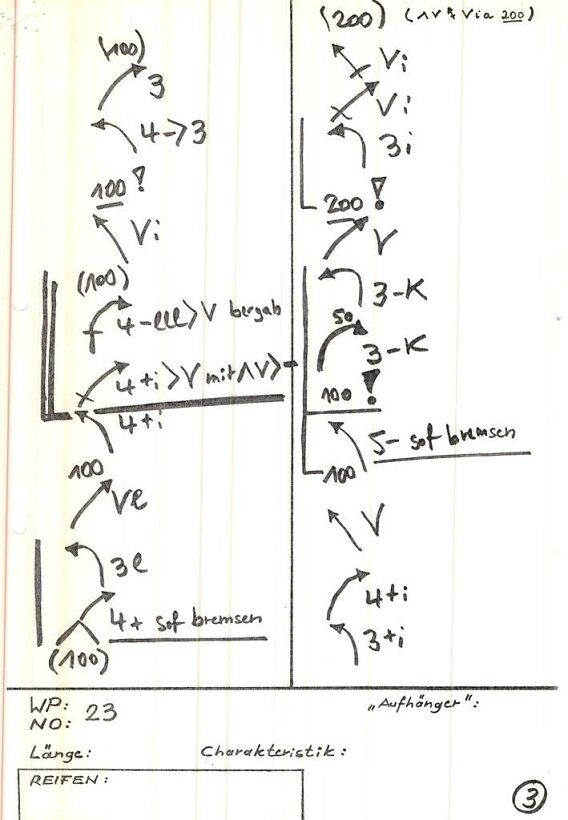 (100)
3
4->3
100!
Vi
(100)
4-lll>V bergab
4+i>V mit ΛV>-
4+i
100
Ve
3e
4+ sof bremsen
(100)
(200)
Vi
Vi
3i
200!
V
3-K
50
3-K
100!
5- sof bremsen
100
V
4+i
3+i
WP:
NO: 23
„Aufhänger":
Länge:
Charakteristik:
REIFEN:
3